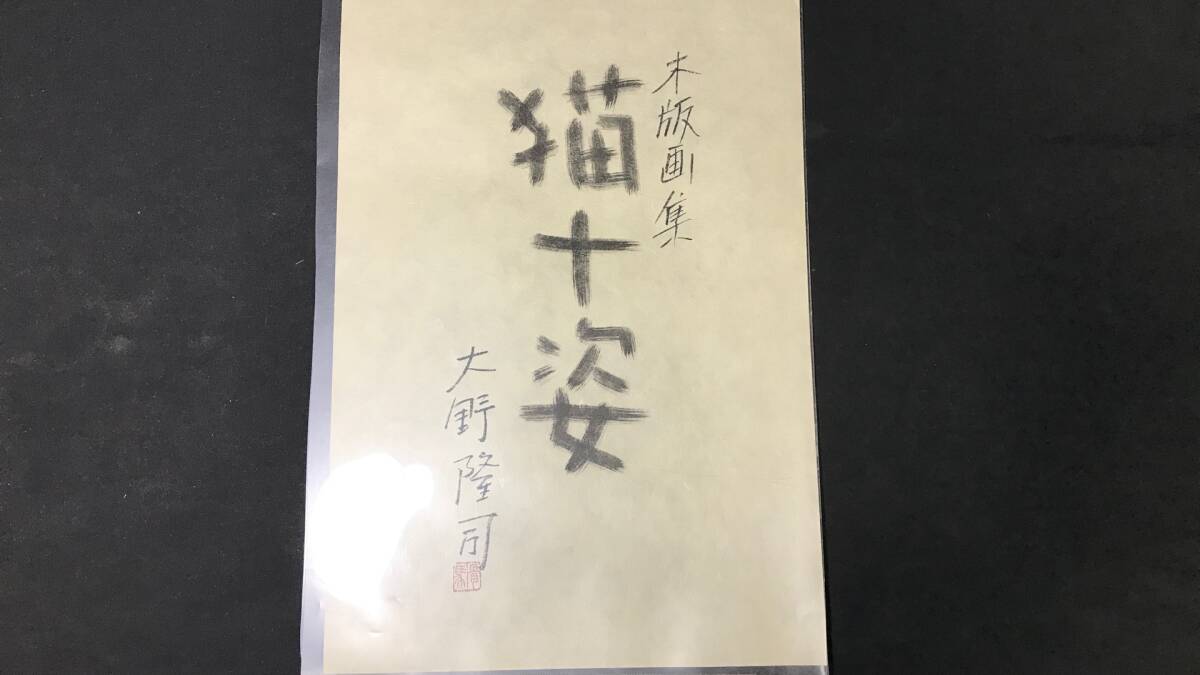 木版画集
猫十姿
大野隆司